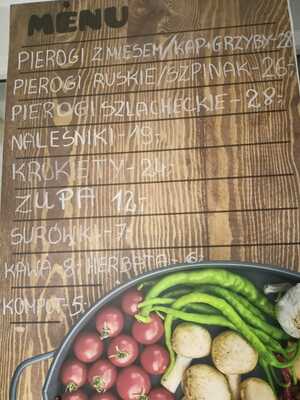 MENU
PIEROGI Z MIĘSEM/KAP+GRZYBY-28
PIEROGI RUSKIE/SZPINAK-26,-
PIEROGI SZLACHECKIE-28,-
NALEŚNIKI-19,-
KROKIETY-24,-
ZUPA 12,-
SURÓWKI-7,-
KAWA-8,-HERBATA-6,-
KOMPOT-5,-